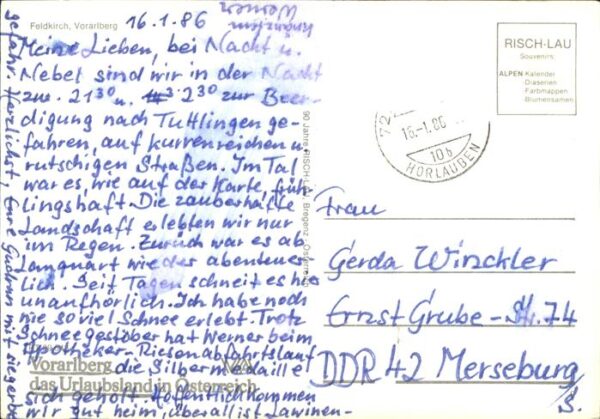 Feldkirch, Vorarlberg
16.1.86
Meine Lieben, bei Nacht u.
Nebel sind wir in der Nacht
zw. 21³⁰ u. 2³⁰ zur Beer-
digung nach Tuttlingen ge-
fahren, auf kurvenreichen u.
rutschigen Straßen. Im Tal
war es, wie auf der Karte, früh-
lingshaft. Die zauberhafte
Landschaft erlebten wir nur
im Regen. Zurück war es ab
Lanquart wieder abenteuer-
lich. Seit Tagen schneit es hie
unaufhörlich. Ich habe noch
nie so viel Schnee erlebt. Trotz
Schneegestöber hat Werner beim
Apotheker-Riesenabfahrtslauf
die Silbermedaille
sich geholt. Hoffentlich kommen
wir gut heim, überall ist Lawinen-
gefahr. Herzlichst, Eure Gudrun mit sieger
Werner
Vorarlberg
das Urlaubsland in Österreich
90 Jahre RISCH-LAU, Bregenz, Österreich
RISCH-LAU
Souvenirs:
ALPEN Kalender
Diaserien
Farbmappen
Blumensamen
72
16.-1.86
10b
HORLAUBEN
Frau
Gerda Winckler
Ernst Grube-Str. 74
DDR 42 Merseburg
/S.